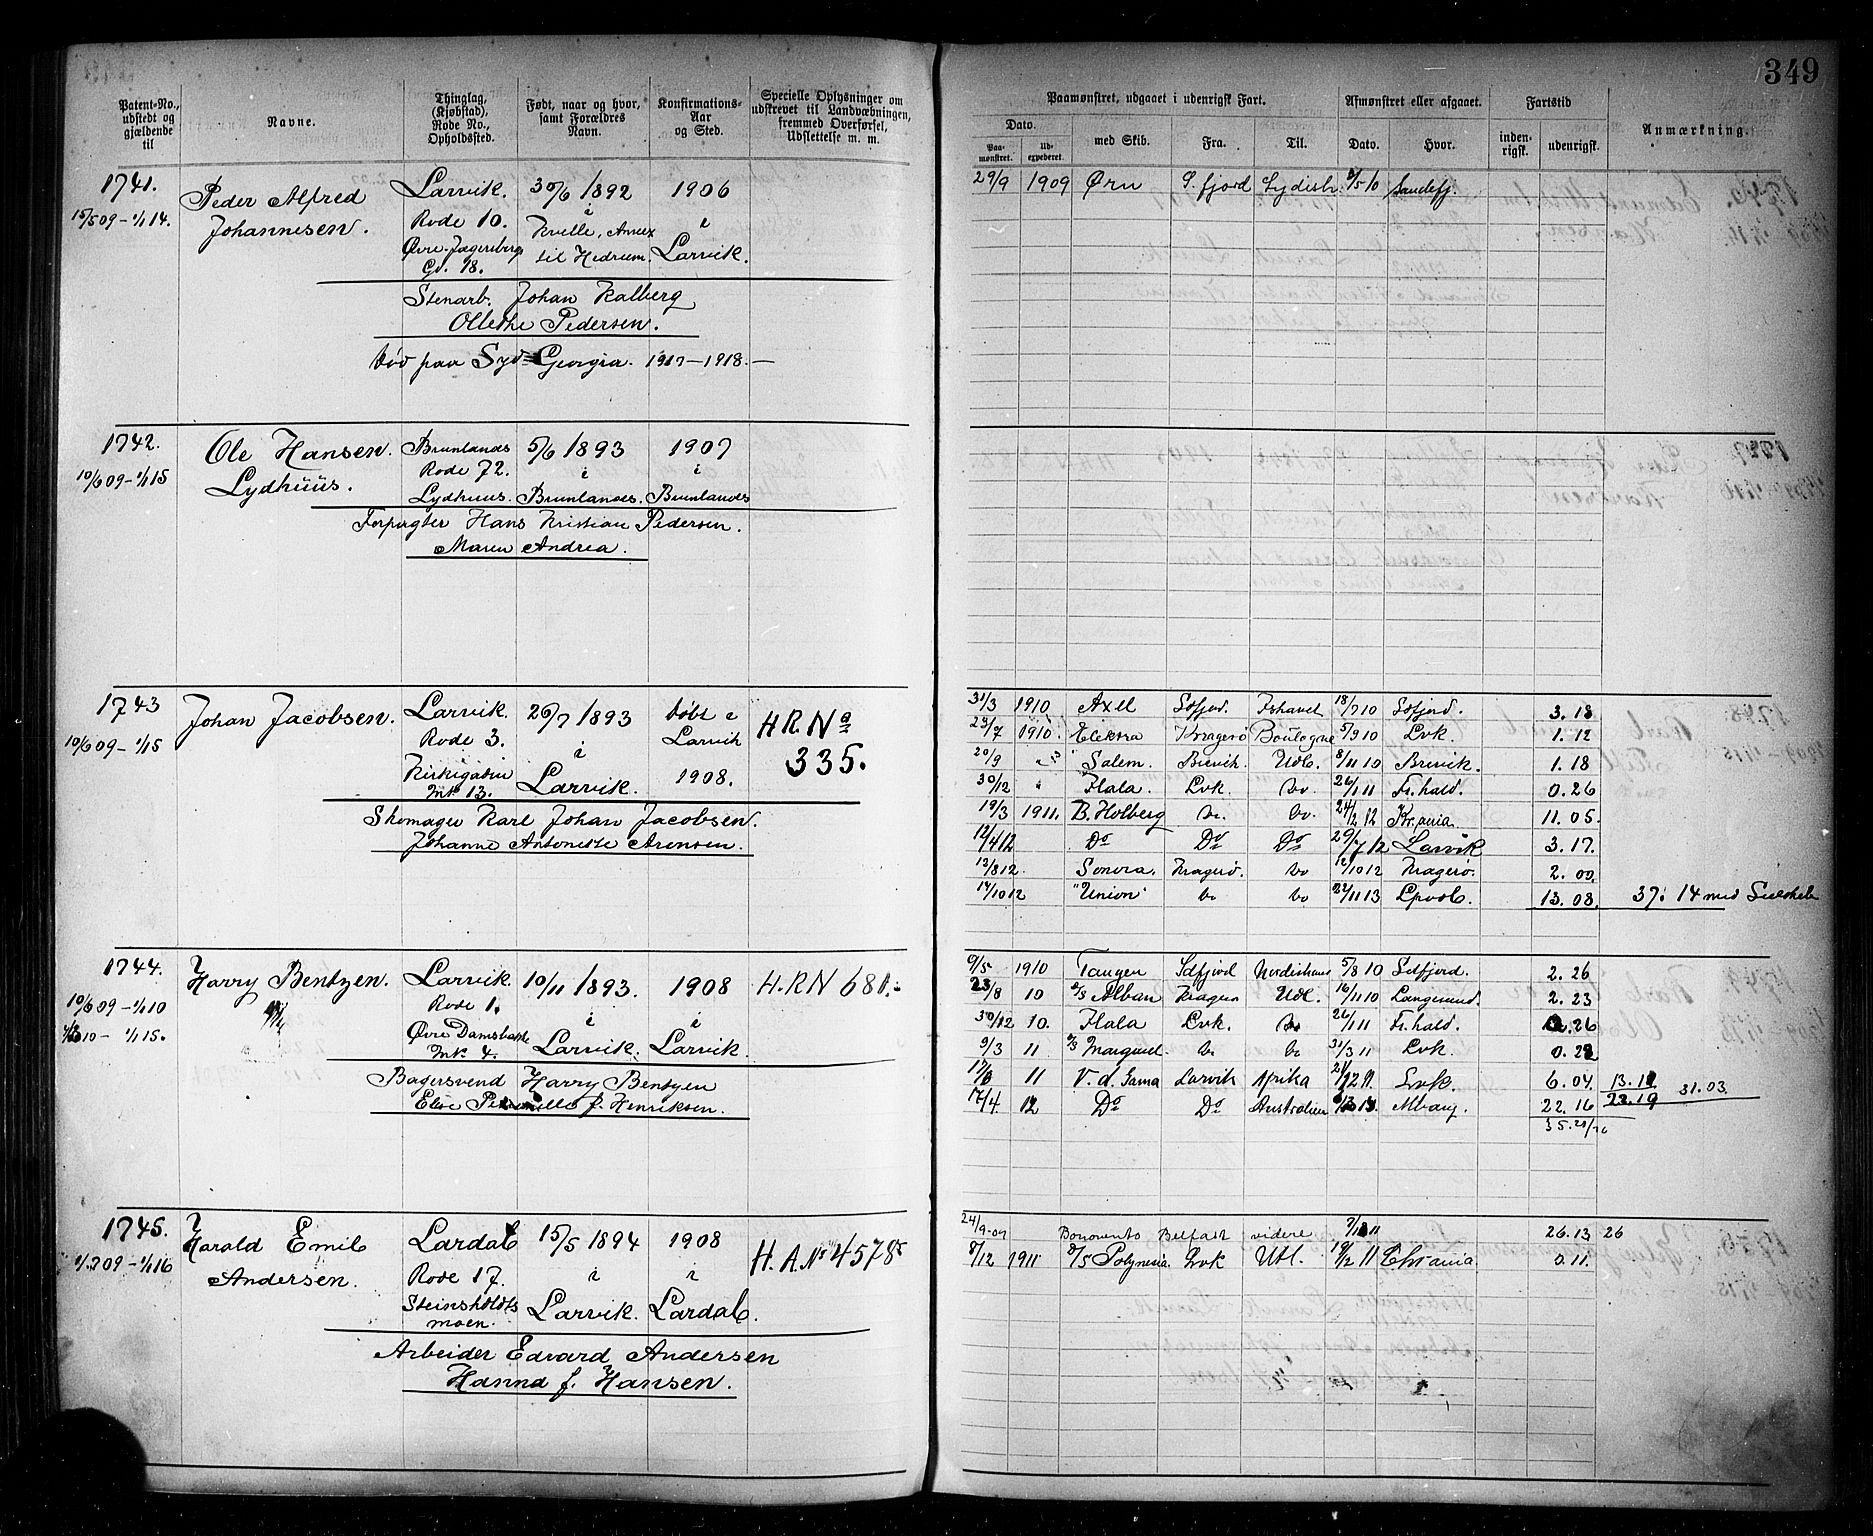 349
Patent-No., udstedt og gjældende til
Navne.
Thinglag, (Kjøbstad), Rode No., Opholdssted.
Født, naar og hvor, samt Forældres Navn.
Konfirmations- Aar og Sted.
Specielle Oplysninger om udskrevet til Landvæbningen, fremmed Overførsel, Udslettelse m. m.
Paamønstret, udgaaet i udenrigsk Fart.
Afmønstret eller afgaaet.
Fartstid
Anmærkning.
Dato.
med Skib. Fra. Til. Dato. Hvor. inden- rigsk. udenrigsk.
Paa- mønstret. Ud- expederet.
1741. Peder Alfred Larvik. 30/6 1892 1906
15/5 09 – 1/1 14. Johannesen. Rode 10. i i
Kvelle, Annex
Øvre Jægersberg til Hedrum. Larvik.
Gd. 18.
Stenarb. Johan Kalberg
Ollethe Pedersen.
Død paa Syd-Georgia. 1917–1918.–
29/9 1909 Ørn S. fjord Sydish. /5 10 Sandefj.
1742. Ole Hansen. Brunlanes 5/6 1893 1907
10/6 09 – 1/1 15 Lydhuus. Rode 72. i i
Lydhuus. Brunlanes. Brunlanes
Forpagter Hans Kristian Pedersen.
Maren Andrea.
1743 Johan Jacobsen. Larvik. 26/7 1893 døbt i H.R.No
10/6 09 – 1/1 15 Rode 3. i Larvik 335.
Kirkegaten
Mk 13. Larvik. 1908.
Skomager Karl Johan Jacobsen.
Johanne Antonette Arensen.
31/3 1910 Axel Sdfjord. Ishavet 18/7 10 Sdfjord. 3. 18
23/7 1910. Elektra Kragerø Boulogne 5/9 10 Lvk. 1. 12
20/9 " Salem. Brevik. Udl. 8/11 10 Brevik. 1. 18
30/12 " Hala. Lvk. do 26/1 11 Fr.hald. 0. 26
19/3 1911. B. Holberg do. do. 24/2 12 Kr.ania. 11. 05.
12/4 12 Do Do Do 29/7 12 Larvik 3. 17.
13/8 12. Sonora. Kragerø. do 12/10 12 Kragerø. 2. 00.
14/10 12 "Union" do do 22/11 13 Lpool. 13. 08. 37: 14 med
1744. Harry Bentzen. Larvik. 10/11 1893. 1908 H.RN 681.
10/6 09 – 1/1 10 Rode 1. i i
10 – 1/1 15. Øvre Damsbakke
Mk 4. Larvik. Larvik.
Bagersvend Harry Bentzen
Elise Pernille f. Henriksen.
9/5 1910 Tangen Sdfjord Nordishavet 5/8 10 Sdfjord. 2. 26
23/8 10 S/S Alban Kragerø Udl. 16/11 10 Langesund. 2. 23
30/12 10. Hala Lvk. do 26/1 11 Fr.hald. 0. 26
9/3 11 do do 31/3 11 Lvk. 0. 22
17/6 11 V. d. Gama Larvik Afrika 21/12 11. Lvk. 6. 04. 13. 11
17/4. 12 Do Do Australien Mbang. 22. 16 23. 19 31. 03.
35. 20/26
1745. Harald Emil Lardal 15/5 1894 1908 H. A. No 4578
09 – 1/1 16 Andersen. Rode 17. i i
Steinsholdts
moen. Larvik. Lardal.
Arbeider Edvard Andersen
Hanna f. Hansen.
24/9-09 Bonovento Belfast videre 26. 13 26
8/12 1911 S/S Polynesia. Lvk Utl. 19/2 11 Chrania 0. 11.